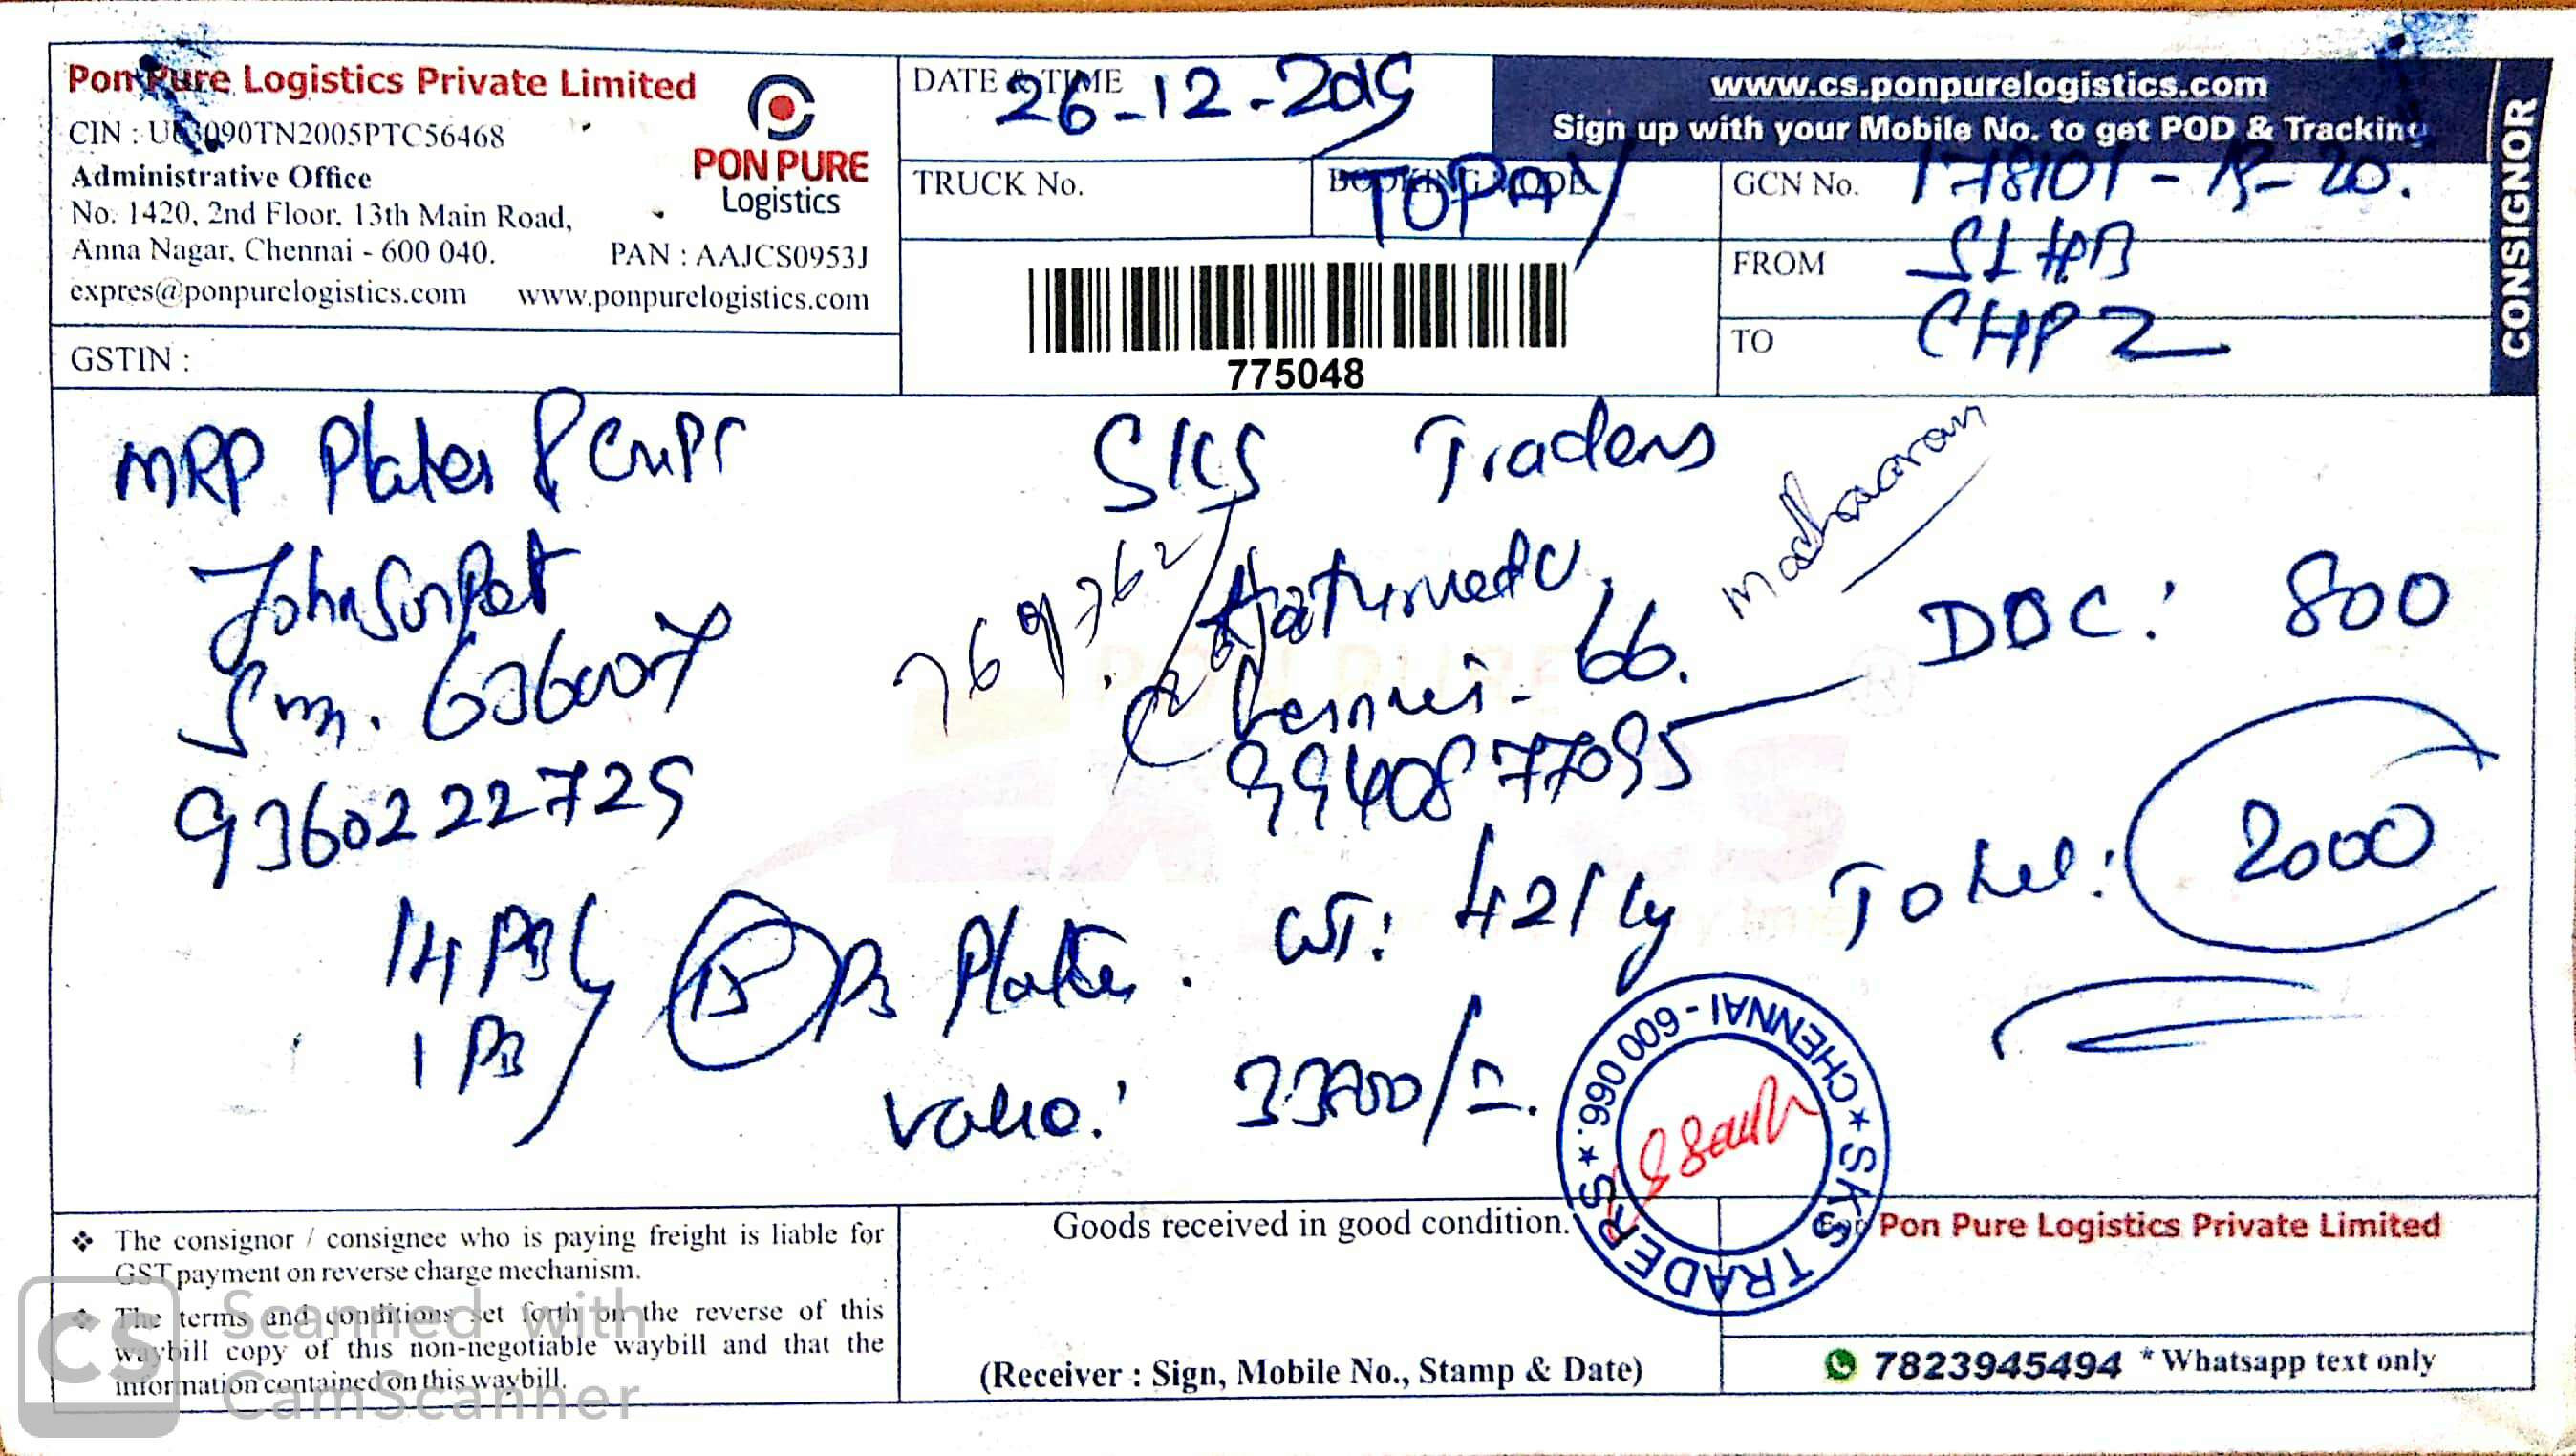 Pon Pure Logistics Private Limited
CIN : U63090TN2005PTC56468
Administrative Office
No. 1420, 2nd Floor, 13th Main Road,
Anna Nagar, Chennai - 600 040.
PAN : AAJCS0953J
expres@ponpurelogistics.com www.ponpurelogistics.com
PON PURE
Logistics
GSTIN :
DATE & TIME 26-12-2019
TRUCK No.
BOOKING MODE TOPAY
775048
www.cs.ponpurelogistics.com
Sign up with your Mobile No. to get POD & Tracking
GCN No. 178101 - 19-20.
FROM SLHB
TO CHP2
CONSIGNOR
MRP Plates & Cups
Johnsonpet
636007
9360222729
SKS Traders
Kathirvedu
Chennai - 66.
9940877095
DOC: 800
Total: 2000
14 PBL
1 PB
15 PB Plates. WT: 421 kg
Value: 33700/-
SKS TRADERS ★ CHENNAI - 600 066. ★
❖ The consignor / consignee who is paying freight is liable for
GST payment on reverse charge mechanism.
❖ The terms and conditions set forth on the reverse of this
waybill copy of this non-negotiable waybill and that the
information contained on this waybill.
Goods received in good condition.
(Receiver : Sign, Mobile No., Stamp & Date)
For Pon Pure Logistics Private Limited
7823945494 * Whatsapp text only
CS Scanned with
CamScanner